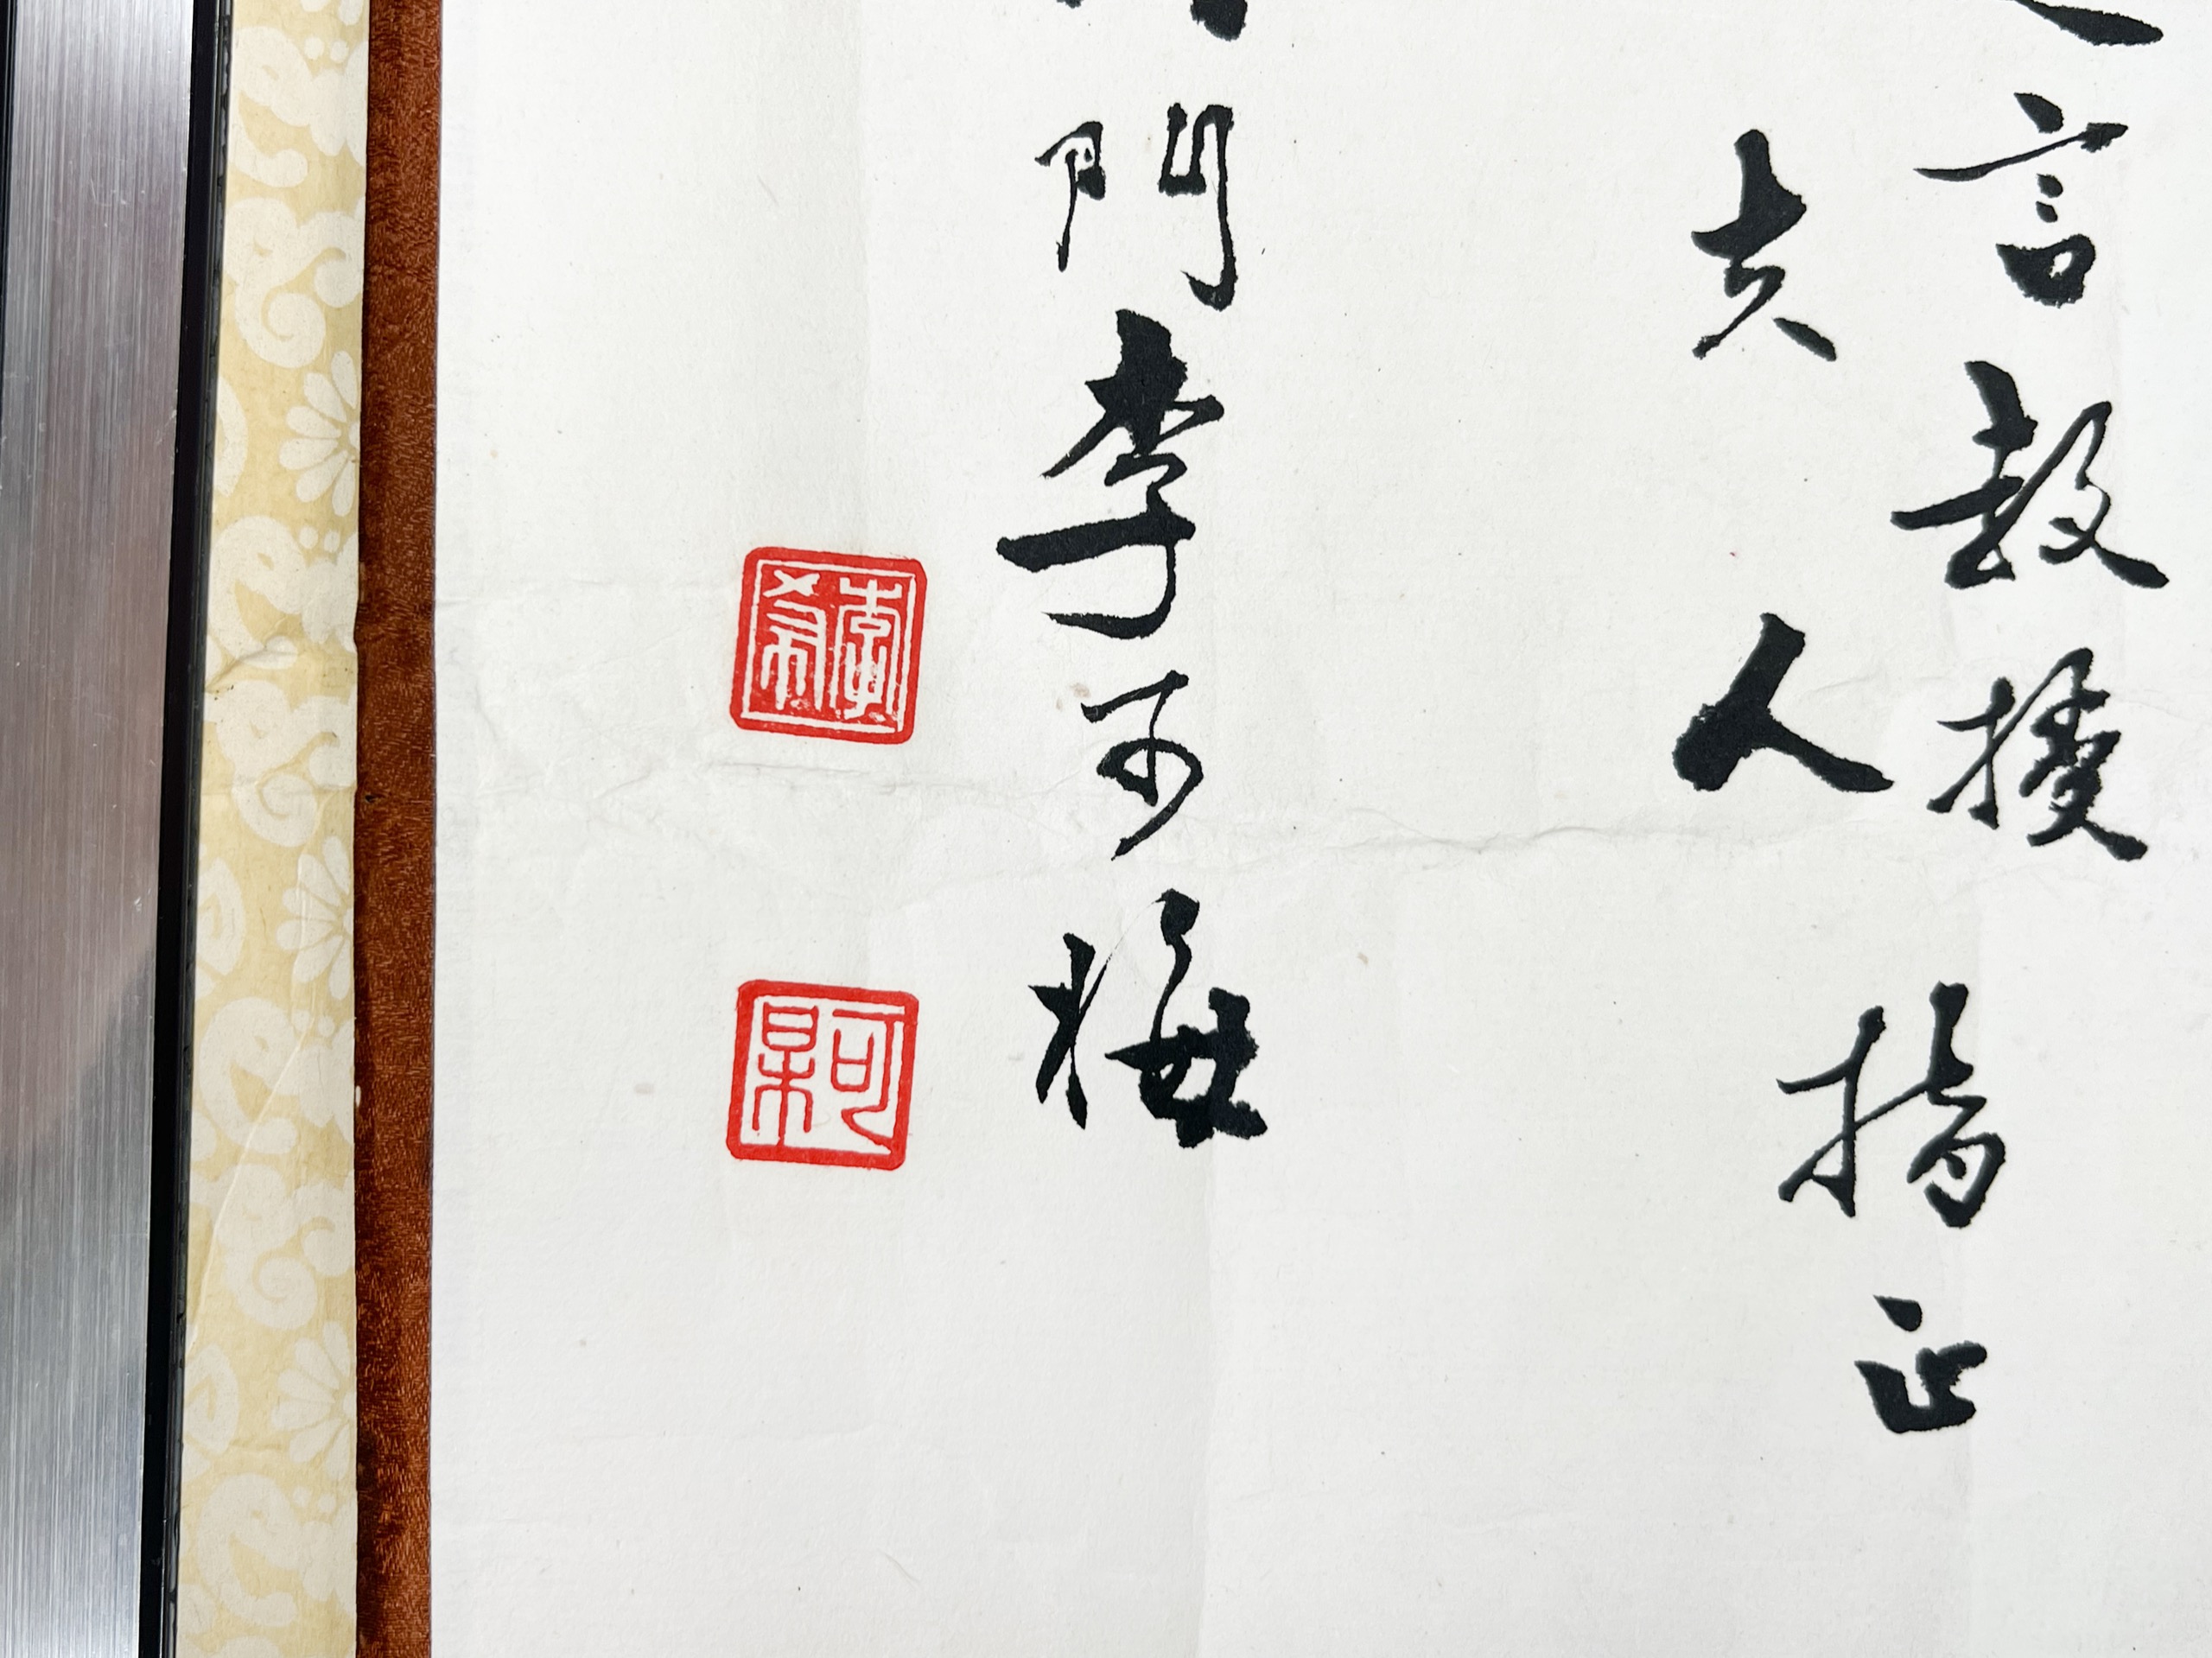 言教授
夫人
指正
門李可梅